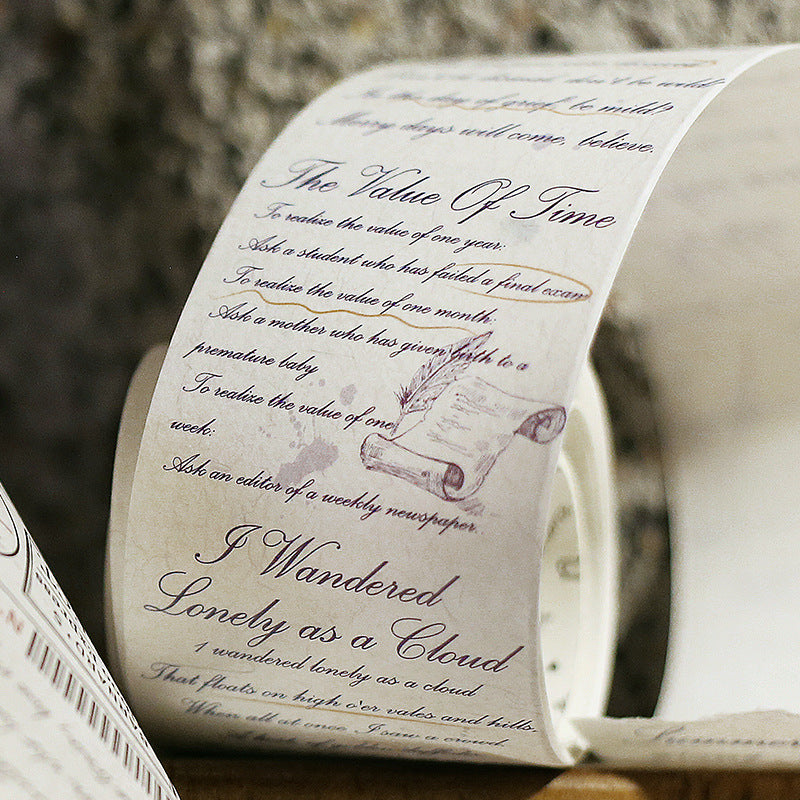 don't be wild
In the day of grief, be mild?
Merry days will come, believe.
The Value Of Time
To realize the value of one year:
Ask a student who has failed a final exam
To realize the value of one month:
Ask a mother who has given birth to a
premature baby
To realize the value of one
week:
Ask an editor of a weekly newspaper.
I Wandered
Lonely as a Cloud
I wandered lonely as a cloud
That floats on high o'er vales and hills,
When all at once I saw a crowd,
Summer